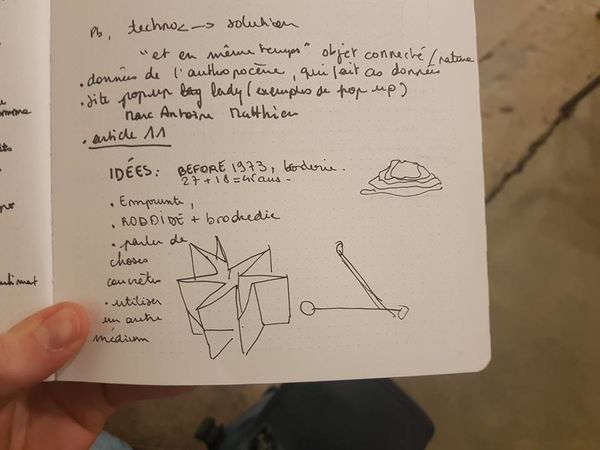 Pb, techno → solution
"et en même temps" objet connecté/nature
• données de l'anthropocène, qui fait ces données
• site pop.up bag lady (exemples de pop up)
Marc Antoine Matthieu
• article 11
IDÉES: BEFORE 1973, broderie.
27 + 18 = 45 ans -
• Emprunte,
+
• parler de
choses
concrètes
• utiliser
un autre
médium